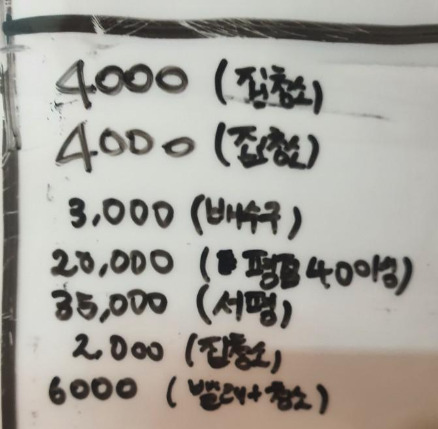 4000 (집청소)
4000 (집청소)
3,000 (배수구)
20,000 (평균 40이상)
35,000 (서평)
2,000 (집청소)
6000 (빨래+청소)